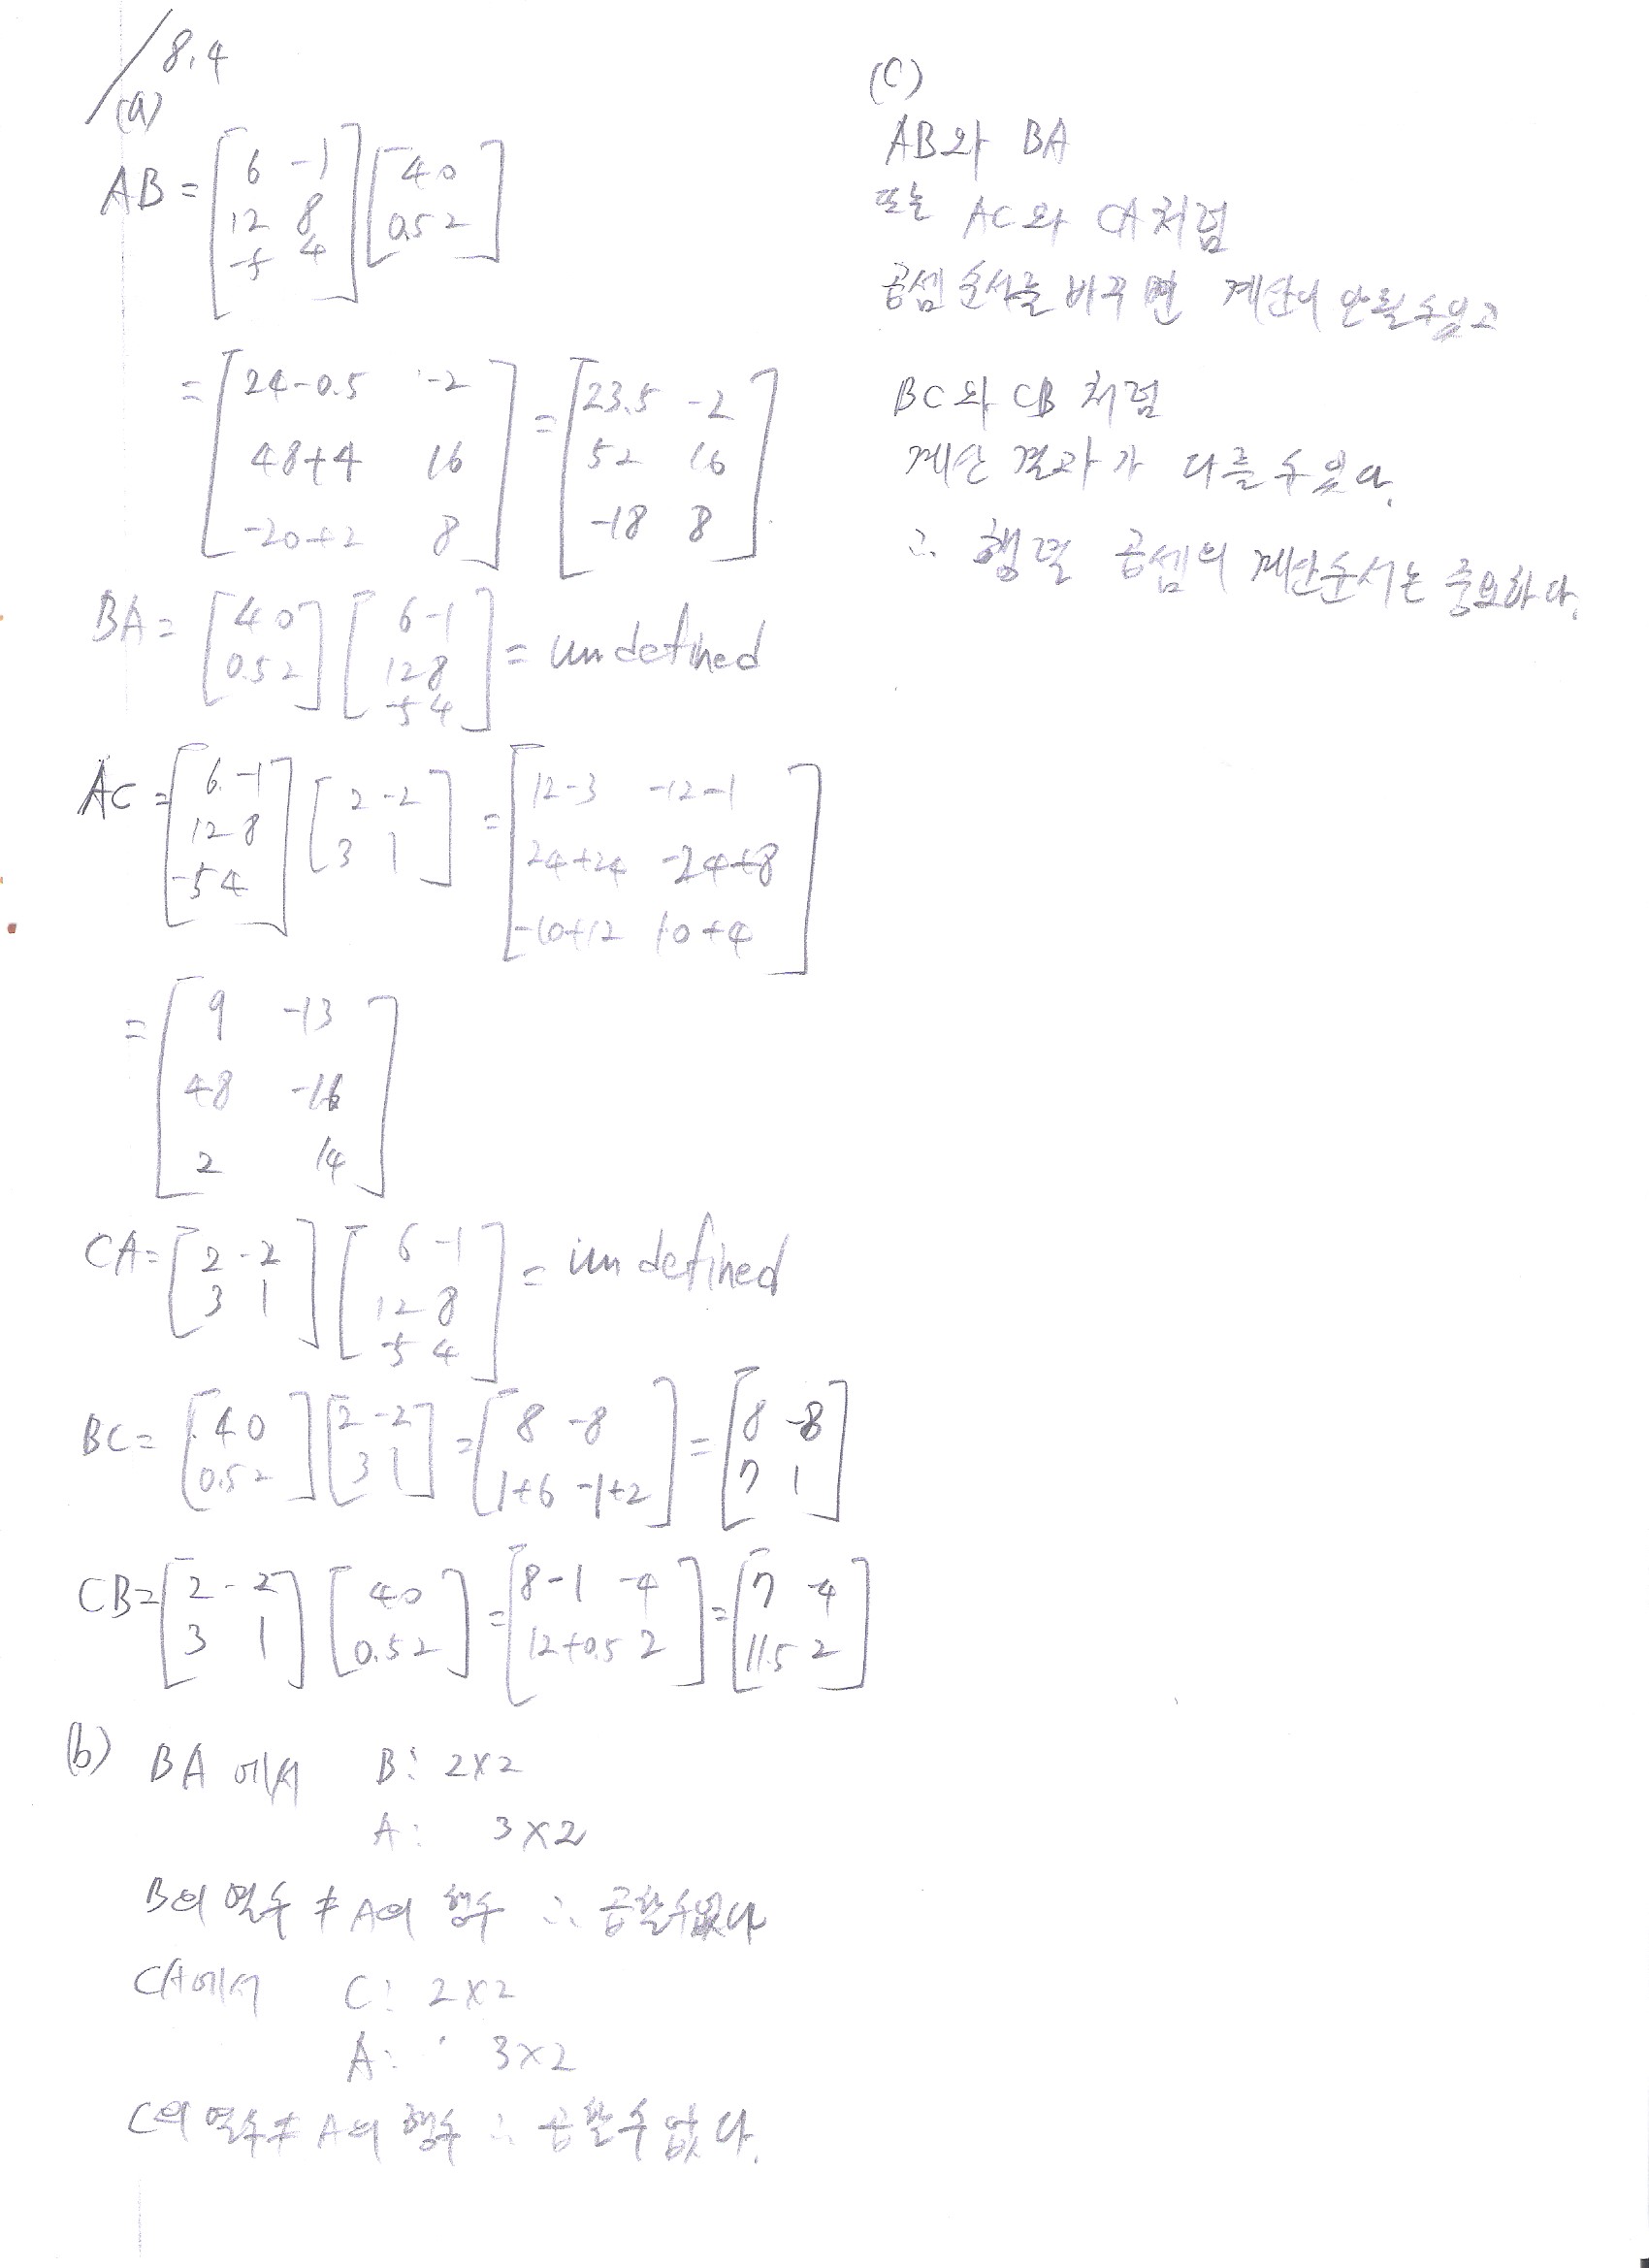 8.4
(a)
AB = [6 -1; 12 8; -5 4] [4 0; 0.5 2]
= [24-0.5 -2; 48+4 16; -20+2 8] = [23.5 -2; 52 16; -18 8]
BA = [4 0; 0.5 2] [6 -1; 12 8; -5 4] = undefined
AC = [6 -1; 12 8; -5 4] [2 -2; 3 1] = [12-3 -12-1; 24+24 -24+8; -10+12 10+4]
= [9 -13; 48 -16; 2 14]
CA = [2 -2; 3 1] [6 -1; 12 8; -5 4] = undefined
BC = [4 0; 0.5 2] [2 -2; 3 1] = [8 -8; 1+6 -1+2] = [8 -8; 7 1]
CB = [2 -2; 3 1] [4 0; 0.5 2] = [8-1 -4; 12+0.5 2] = [7 -4; 11.5 2]
(b) BA에서 B: 2×2
A: 3×2
B의 열수 ≠ A의 행수 ∴ 곱할수없다
CA에서 C: 2×2
A: 3×2
C의 열수 ≠ A의 행수 ∴ 곱할수 없다.
(C)
AB와 BA
또는 AC와 CA처럼
곱셈 순서를 바꾸면 계산이 안될수있고
BC와 CB 처럼
계산 결과가 다를수 있다.
∴ 행렬 곱셈의 계산순서는 중요하다.